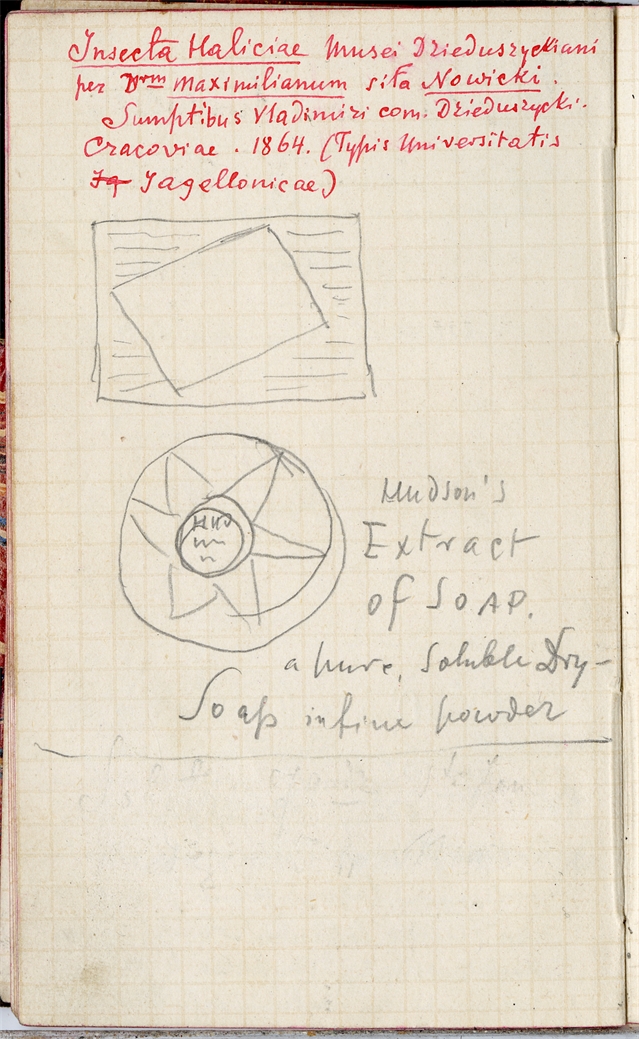 Insecta Haliciae Musei Dzieduszyckiani
per Drm Maximilianum Siła Nowicki.
Sumptibus Vladimiri com. Dzieduszycki.
Cracoviae. 1864. (Typis Universitatis
Jagellonicae)
HUD
Hudson's
Extract
of SOAP.
a pure, Soluble Dry-
Soap in fine powder